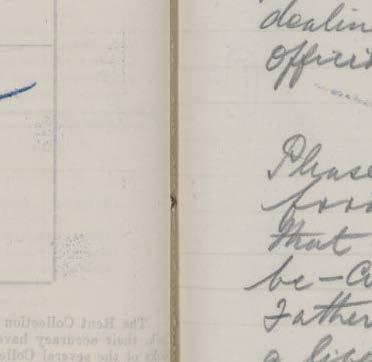 dealin
offici
Please
food
that
be-co
Father
a lice
The Rent Collection
ok, their accuracy have
ks of the several Colle